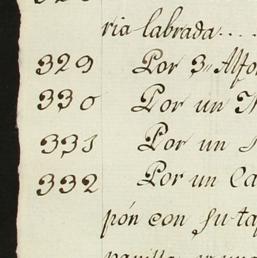 ria labrada....
329 Por 3,, Alfo
330 Por un
331 Por un
332 Por un Ca
pón con su ta